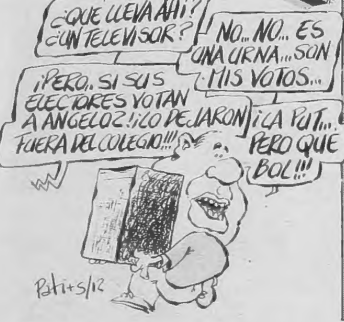 ¿QUE LLEVA AHI?
¿UN TELEVISOR?
NO... NO... ES
UNA URNA... SON
MIS VOTOS...
¡PERO.. SI SUS
ELECTORES VOTAN
A ANGELOZ! ¡LO DEJARON
FUERA DEL COLEGIO!!!
¡LA PUT...
PERO QUE
BOL!!!
Pati+s/12